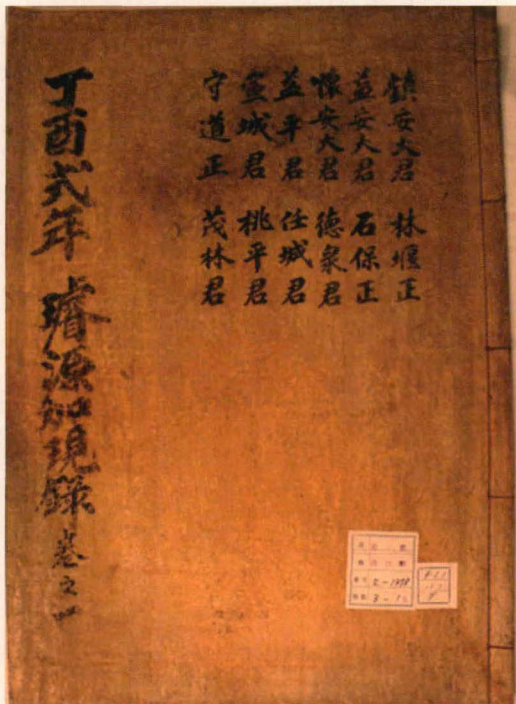 鎮安大君 林堰正
益安大君 石保正
懷安大君 德泉君
益平君 任城君
宣城君 桃平君
守道正 茂林君
丁酉式年 璿源加現錄 卷之四